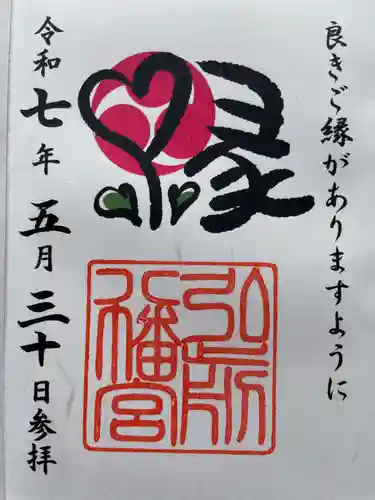 良きご縁がありますように
縁
弘所
八幡宮
令和七年五月三十日参拝